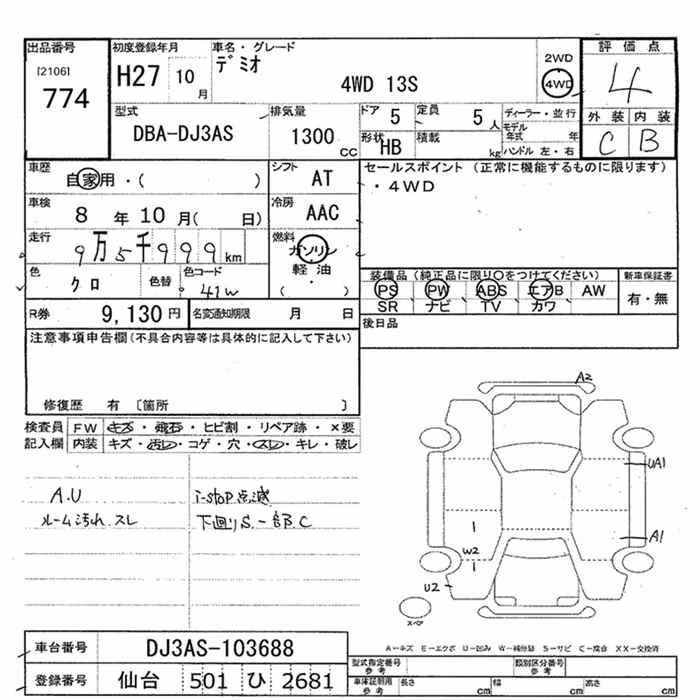 出品番号
[2106]
774
初度登録年月
H27 10月
車名・グレード
デミオ
4WD 13S
2WD
4WD
評価点
4
外装 内装
C B
型式
DBA-DJ3AS
排気量
1300 CC
ドア 5
定員 5人
形状 HB
積載 kg
ディーラー・並行
モデル年式 年
ハンドル 左・右
車歴
自家用・( )
シフト
AT
車検
8年10月( 日)
冷房
AAC
走行
9万5千999km
燃料
ガソリン
軽油
( )
色
クロ
色替
色コード
41W
R券 9,130円
名変通知期限 月 日
セールスポイント (正常に機能するものに限ります)
・4WD
装備品(純正品に限り○をつけてください)
PS PW ABS エアB AW
SR ナビ TV カワ
新車保証書
有・無
後日品
注意事項申告欄(不具合内容等は具体的に記入して下さい)
修復歴 有 〔箇所 〕
検査員記入欄
FW キズ・飛石・ヒビ割・リペア跡・×要
内装 キズ・汚レ・コゲ・穴・スレ・キレ・破レ
A.U
ルーム汚れ.スレ
i-stop点滅
下回りS.一部B.C
A2
UA1
A1
W2
U2
スペア
A-キズ E-エクボ U-凹み W-補修跡 S-サビ C-腐食 XX-交換済
車台番号 DJ3AS-103688
登録番号 仙台 501 ひ 2681
型式指定番号 参考
類別区分番号 参考
車庫証明用 参考
長さ cm 幅 cm 高さ cm